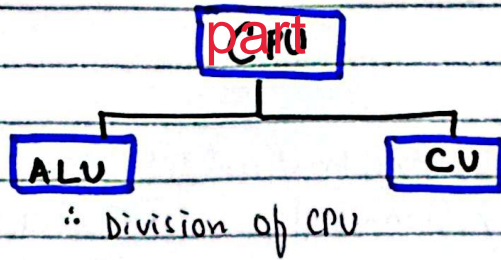 part
CPU
ALU CU
∴ Division of CPU